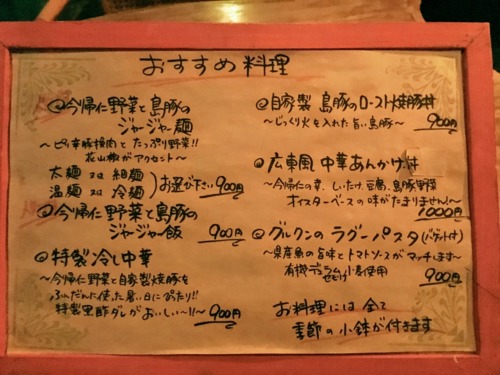 おすすめ料理
◎今帰仁野菜と島豚の
ジャージャー麺
～ピリ辛豚挽肉とたっぷり野菜!!
花山椒がアクセント～
太麺 又は 細麺
温麺 又は 冷麺
お選び下さい 900円
◎今帰仁野菜と島豚の
ジャージャー飯 900円
◎特製 冷し中華 900円
～今帰仁野菜と自家製焼豚を
ふんだんに使った暑い日にぴったり!!
特製黒酢ダレがおいしい～!!～
◎自家製 島豚のロースト焼豚丼
～じっくり火を入れた旨い島豚～ 900円
◎広東風 中華あんかけ丼
～今帰仁の菜、しいたけ、豆腐、島豚、野菜
オイスターベースの味がたまりません!～
1000円
◎グルクンのラグーパスタ(バゲット付)
～県産魚の旨味とトマトソースがマッチします～
有機デュラムセモリナ小麦使用
900円
お料理には全て
季節の小鉢が付きます